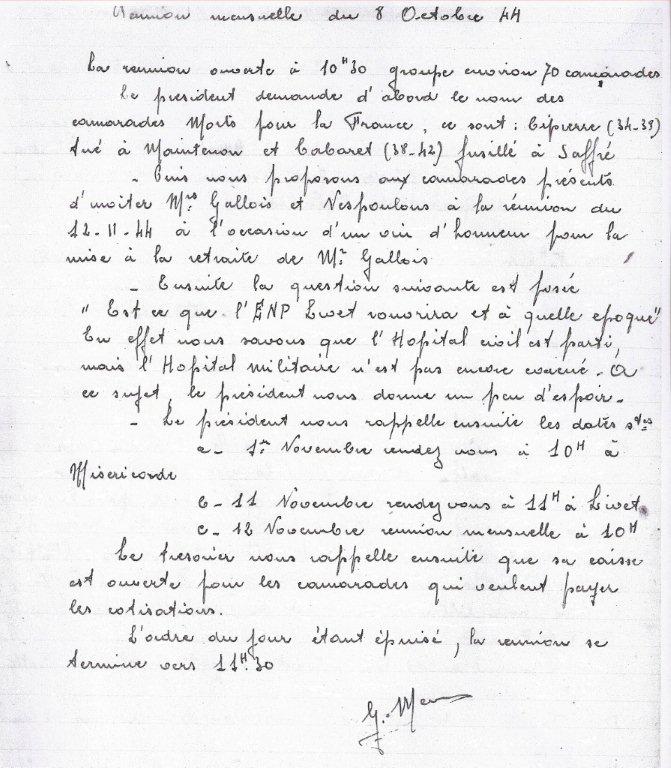 Reunion mensuelle du 8 Octobre 44
La reunion ouverte à 10H30 groupe environ 70 camarades
Le president demande d'abord le nom des
camarades Morts pour la France, ce sont : Cipierre (34-38)
tué à Maintenon et Cabaret (38-42) fusillé à Saffré
- Puis nous proposons aux camarades présents
d'inviter Mrs Gallois et Vespoulous à la réunion du
12-11-44 à l'occasion d'un vin d'honneur pour la
mise à la retraite de Mr Gallois
- Ensuite la question suivante est posée
" Est ce que l'ENP Livet rouvrira et à quelle epoque"
En effet nous savons que l'Hopital civil est parti,
mais l'Hopital militaire n'est pas encore evacué - A
ce sujet, le président nous donne un peu d'espoir -
- Le président nous rappelle ensuite les dates stes
a - 1er Novembre rendez vous à 10H à
Misericorde
b - 11 Novembre rendez vous à 11H à Livet
c - 12 Novembre reunion mensuelle à 10H
Le tresorier nous rappelle ensuite que sa caisse
est ouverte pour les camarades qui veulent payer
les cotisations.
L'ordre du jour étant épuisé, la reunion se
termine vers 11H30